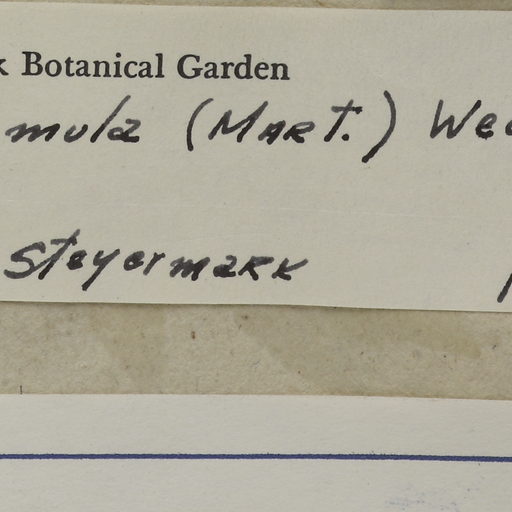 k Botanical Garden
mula (MART.) Wed
Steyermark